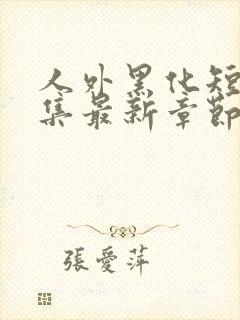 人外黑化短
集最新章節
張愛萍